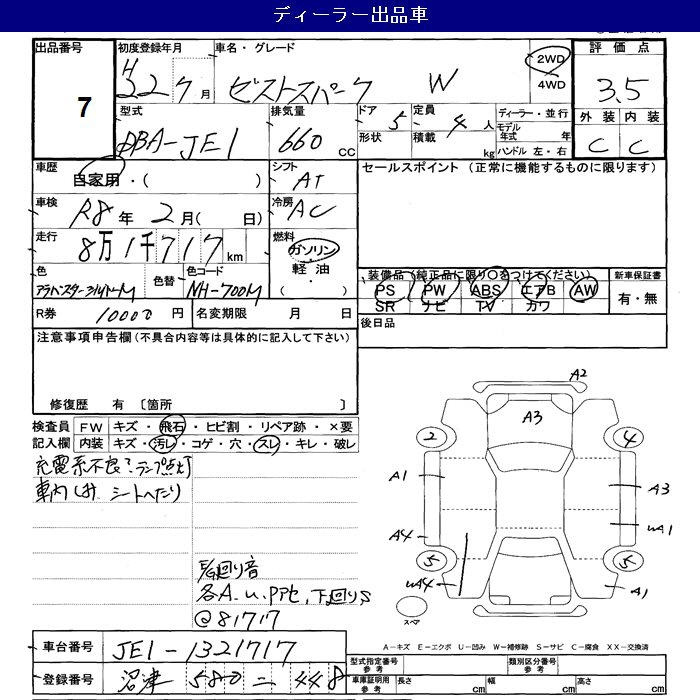 ディーラー出品車
出品番号 初度登録年月 車名・グレード 評価点
7
H22 7月 ゼストスパーク W 2WD 4WD 3.5
型式 排気量 ドア 定員 ディーラー・並行 外装 内装
DBA-JE1 660 CC 5 4人 モデル年式 年 C C
形状 積載 kg ハンドル 左・右
車歴 シフト セールスポイント (正常に機能するものに限ります)
自家用・( ) AT
車検 冷房
R8年 2月( 日) AC
走行 燃料
8万1千717km ガソリン
軽油
・( )
色 色替 色コード 装備品 (純正品に限り○をつけてください) 新車保証書
アラバスターシルバーM NH-700M PS PW ABS エアB AW 有・無
SR ナビ TV カワ
R券 10000円 名変期限 月 日 後日品
注意事項申告欄(不具合内容等は具体的に記入して下さい)
修復歴 有 〔箇所 〕
検査員 FW キズ・飛石・ヒビ割・リペア跡・×要
記入欄 内装 キズ・汚レ・コゲ・穴・スレ・キレ・破レ
充電系不良?ランプ点灯
車内しみ シートへたり
E/G回り音
各A.U.PPセ,下回りS
@81717
A2
A3
2 4
A1 A3
UA1
A4
5 5
UA4 A1
スペア
A−キズ E−エクボ U−凹み W−補修跡 S−サビ C−腐食 XX−交換済
車台番号 JE1-1321717 型式指定番号 参考 類別区分番号 参考
登録番号 沼津 580 ニ 448 車庫証明用 参考 長さ cm 幅 cm 高さ cm